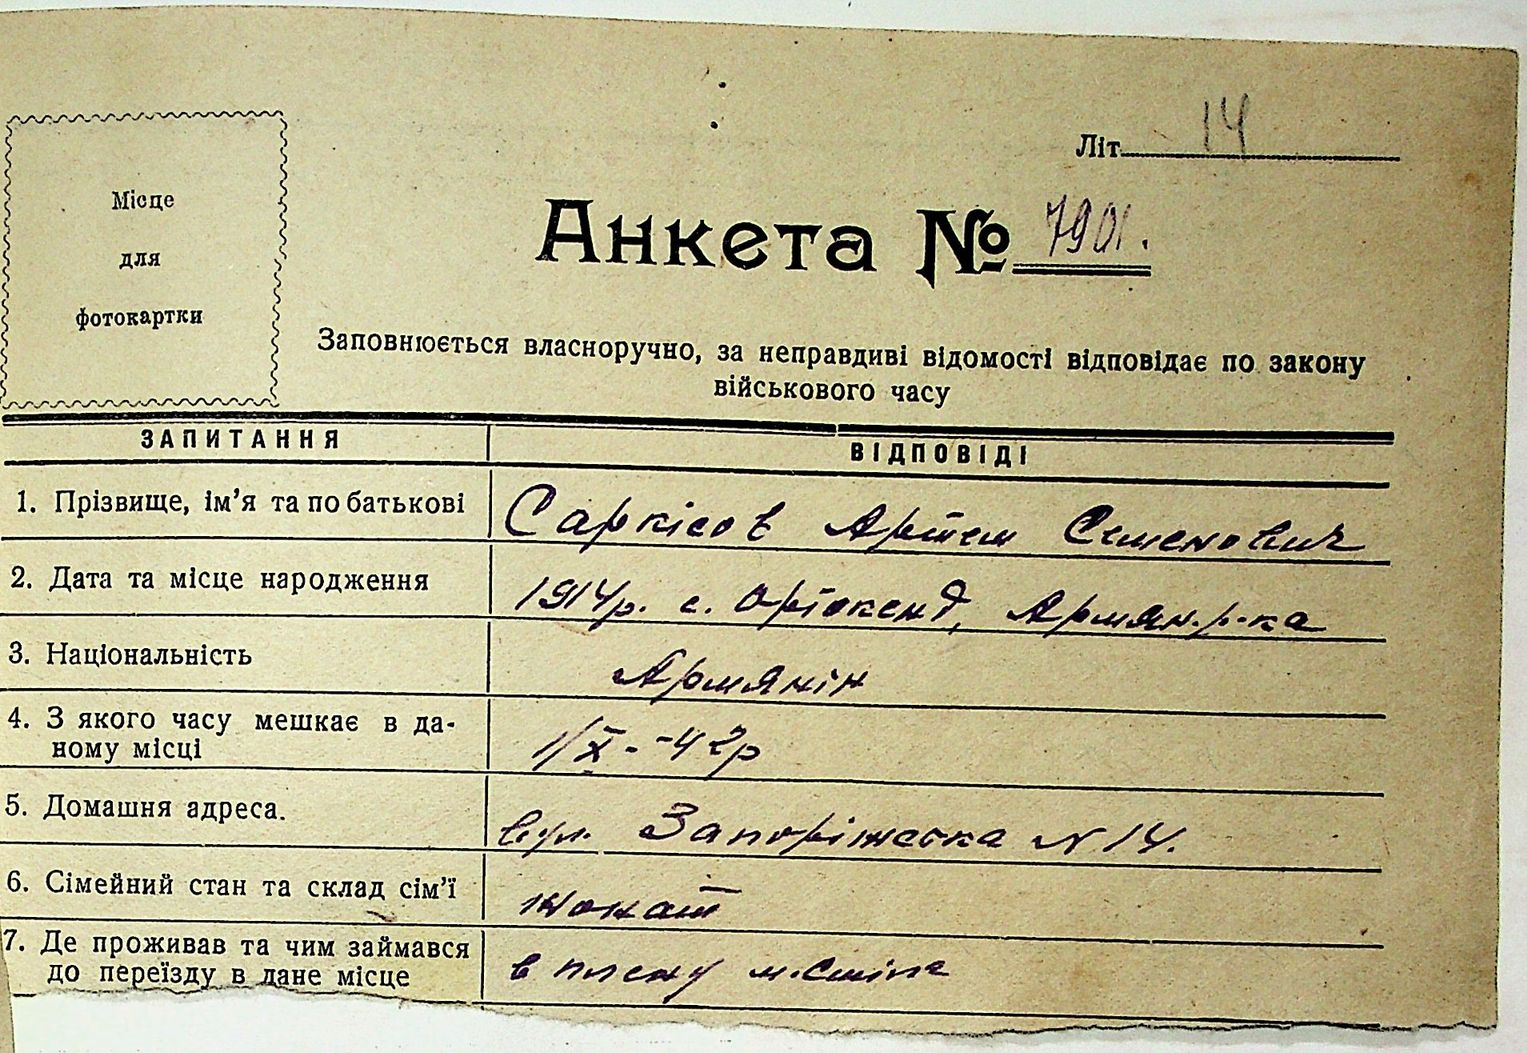 Літ 14
Місце
для
фотокартки
Анкета № 7901.
Заповнюється власноручно, за неправдиві відомості відповідає по закону
військового часу
ЗАПИТАННЯ
ВІДПОВІДІ
1. Прізвище, ім'я та по батькові
Саркісов Артем Семенович
2. Дата та місце народження
1914р. с. Ортакенд, Армян.р-ка
3. Національність
Армянін
4. З якого часу мешкає в да-
ному місці
1/X--42р
5. Домашня адреса.
вул. Запоріжська N 14.
6. Сімейний стан та склад сім'ї
жонат
7. Де проживав та чим займався
до переїзду в дане місце
в плену м.